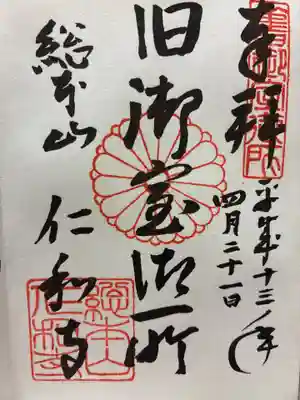 奉拝
平成十三年
四月二十一日
旧御室御所
総本山
仁和寺